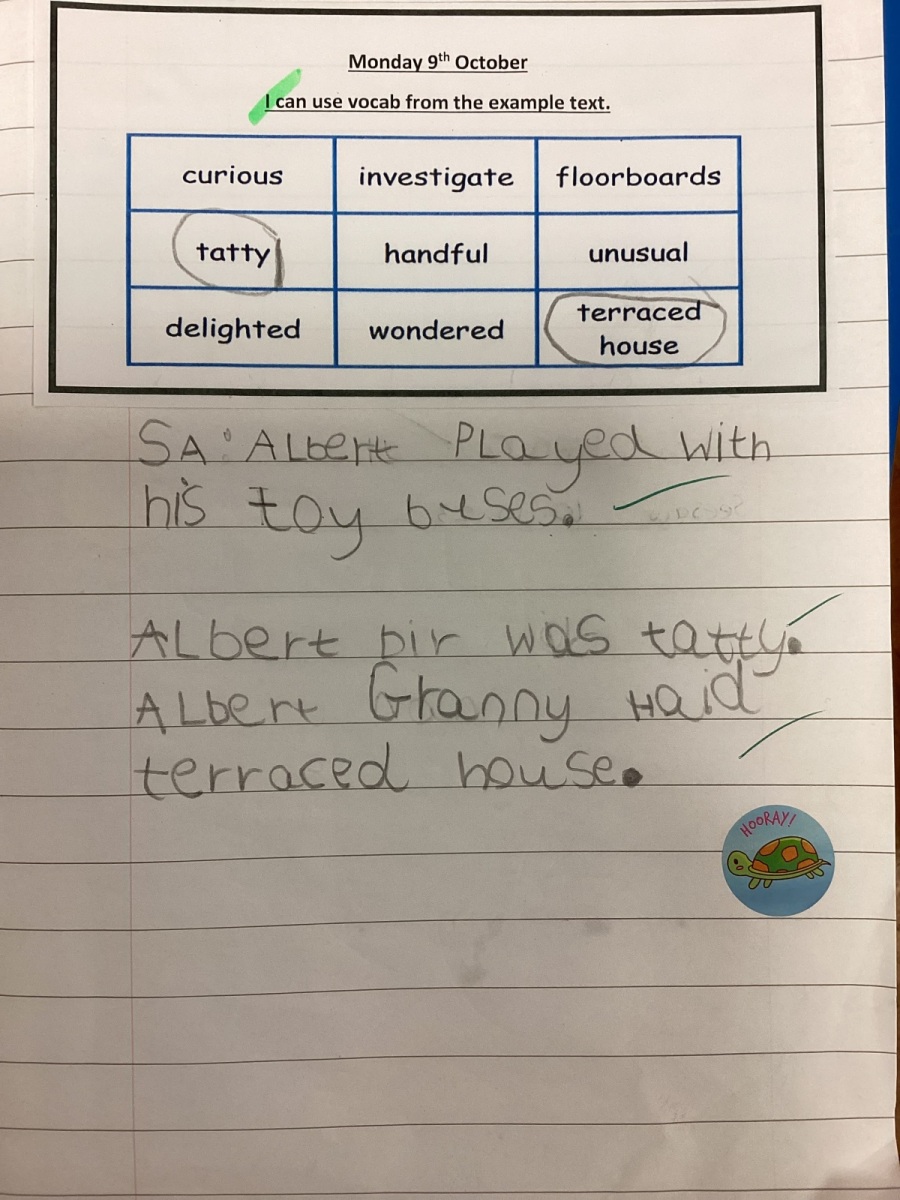 Monday 9th October
I can use vocab from the example text.
curious investigate floorboards
tatty handful unusual
delighted wondered terraced house
SA: Albert Played with
his toy buses.
Albert bir was tatty.
Albert Granny Haid
terraced house.
HOORAY!